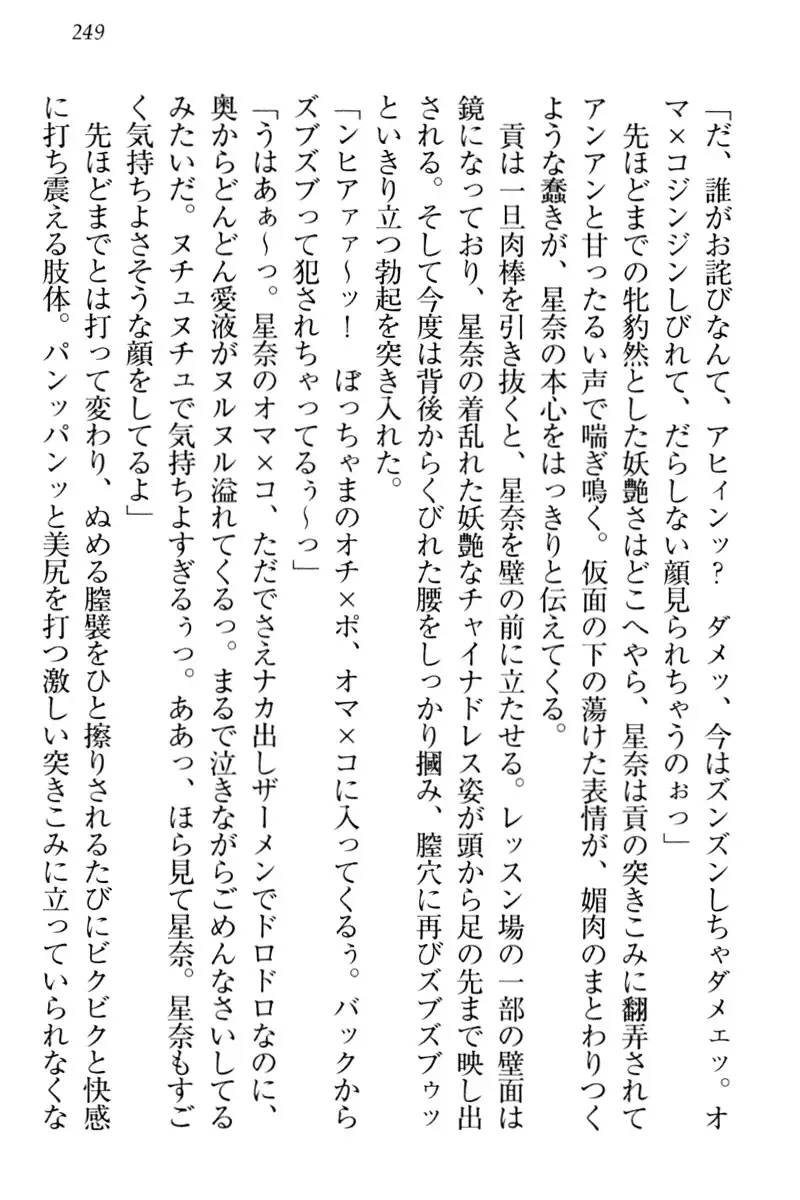 249
「だ、誰がお詫びなんて、アヒィンッ？　ダメッ、今はズンズンしちゃダメェッ。オ
マ×コジンジンしびれて、だらしない顔見られちゃうのぉっ」
先ほどまでの牝豹然とした妖艶さはどこへやら、星奈は貢の突きこみに翻弄されて
アンアンと甘ったるい声で喘ぎ鳴く。仮面の下の蕩けた表情が、媚肉のまとわりつく
ような蠢きが、星奈の本心をはっきりと伝えてくる。
貢は一旦肉棒を引き抜くと、星奈を壁の前に立たせる。レッスン場の一部の壁面は
鏡になっており、星奈の着乱れた妖艶なチャイナドレス姿が頭から足の先まで映し出
される。そして今度は背後からくびれた腰をしっかり摑み、膣穴に再びズブズブゥッ
といきり立つ勃起を突き入れた。
「ンヒアァァ～ッ！　ぼっちゃまのオチ×ポ、オマ×コに入ってくるぅ。バックから
ズブズブって犯されちゃってるぅ～っ」
「うはあぁ～っ。星奈のオマ×コ、ただでさえナカ出しザーメンでドロドロなのに、
奥からどんどん愛液がヌルヌル溢れてくるっ。まるで泣きながらごめんなさいしてる
みたいだ。ヌチュヌチュで気持ちよすぎるぅっ。ああっ、ほら見て星奈。星奈もすご
く気持ちよさそうな顔をしてるよ」
先ほどまでとは打って変わり、ぬめる膣襞をひと擦りされるたびにビクビクと快感
に打ち震える肢体。パンッパンッと美尻を打つ激しい突きこみに立っていられなくな